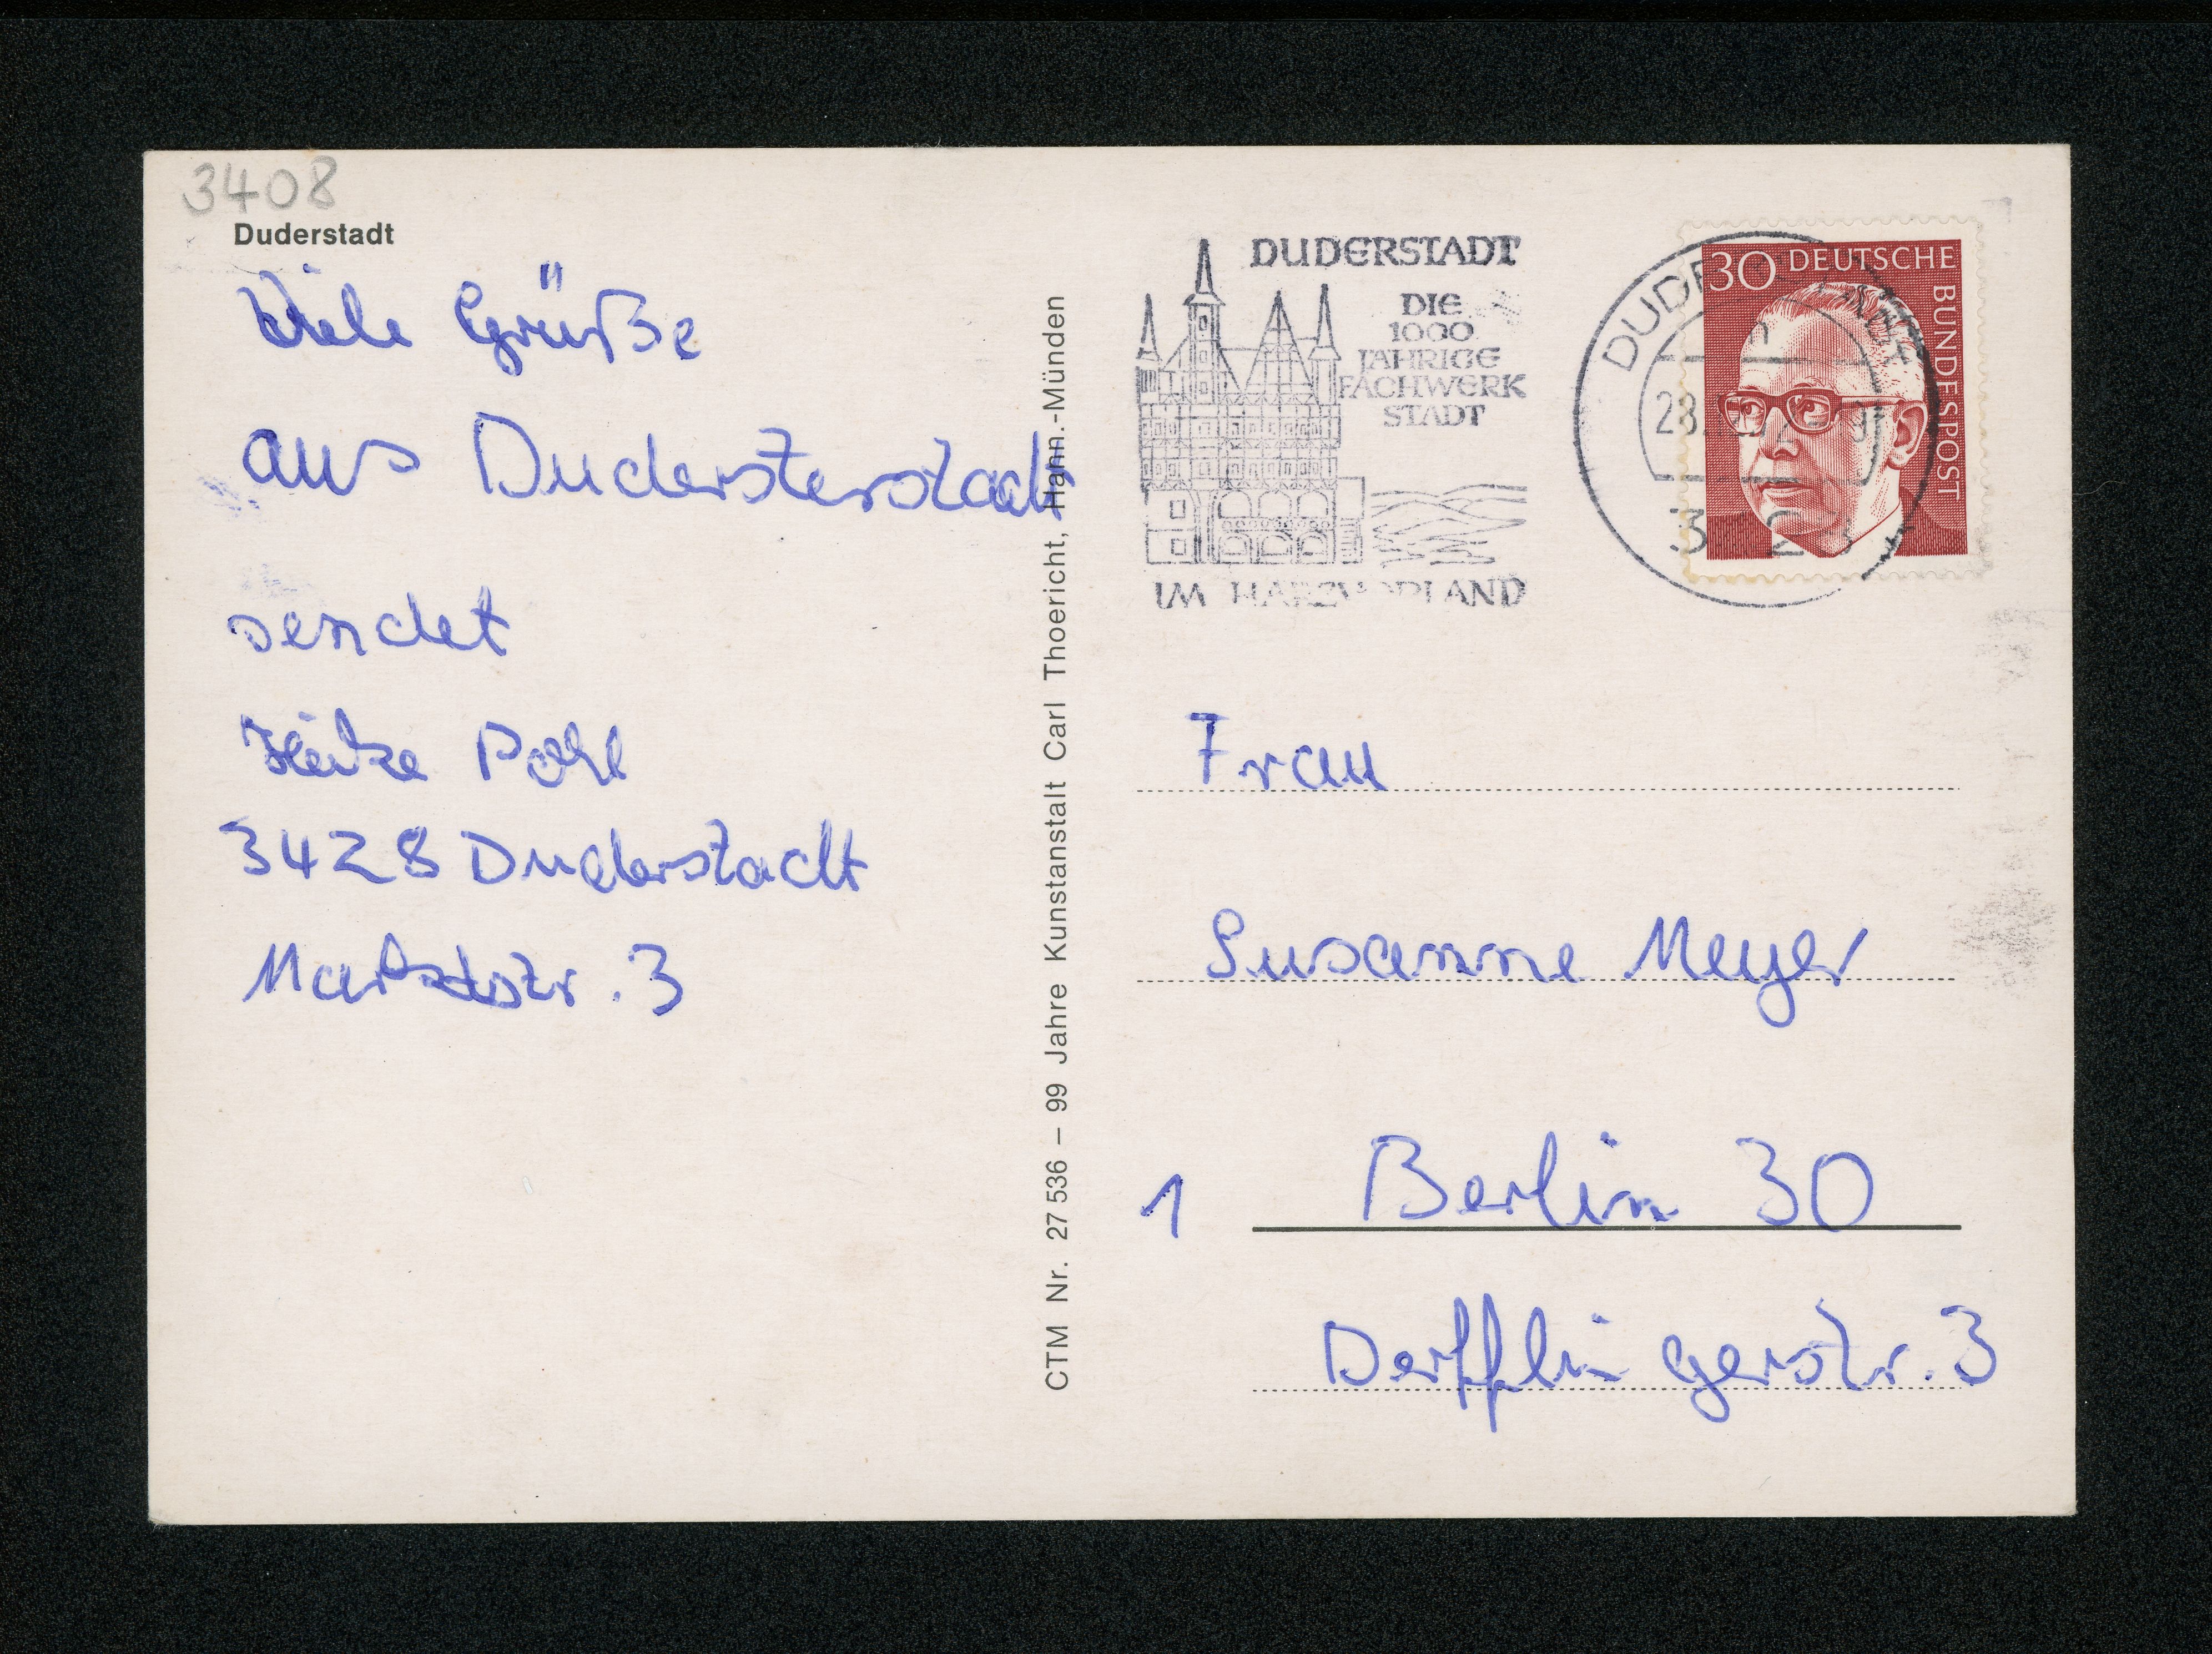 3408
Duderstadt
Viele Grüße
aus Dudersterstadt
sendet
Heike Pohl
3428 Duderstadt
Marktstr. 3
CTM Nr. 27 536 – 99 Jahre Kunstanstalt Carl Thoericht, Hann.-Münden
DUDERSTADT
DIE
1000
JÄHRIGE
FACHWERK
STADT
IM HARZVORLAND
30 DEUTSCHE
BUNDESPOST
Frau
Susanne Meyer
1 Berlin 30
Derfflingerstr. 3